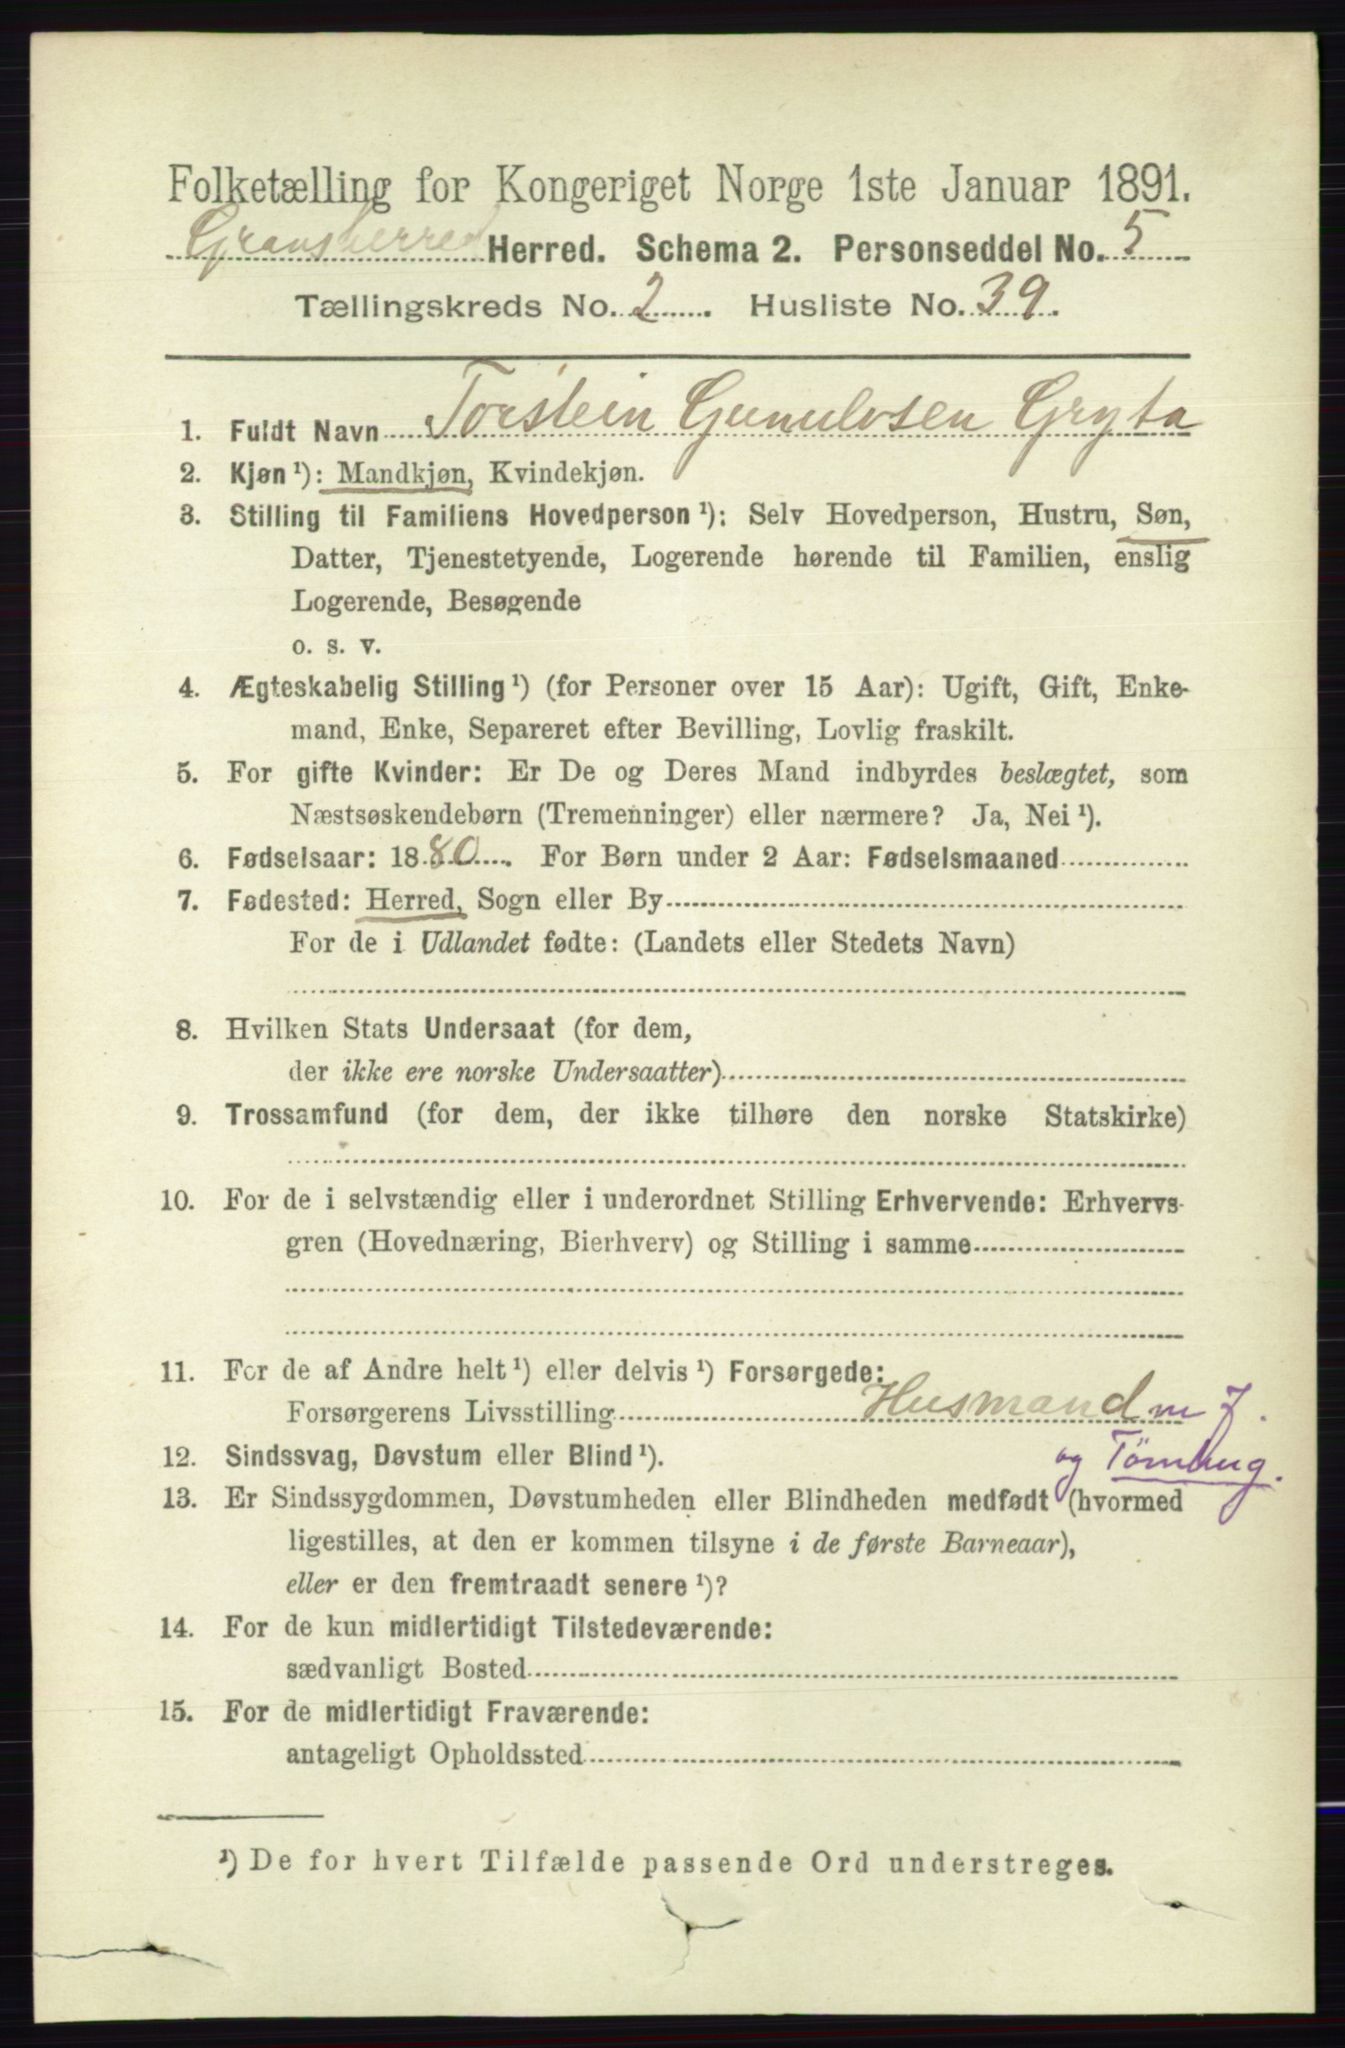 Folketælling for Kongeriget Norge 1ste Januar 1891.
Gransherred Herred. Schema 2. Personseddel No. 5
Tællingskreds No. 2. Husliste No. 39.
1. Fuldt Navn Torstein Gunulvsen Gryta
2. Kjøn ¹): Mandkjøn, Kvindekjøn.
3. Stilling til Familiens Hovedperson ¹): Selv Hovedperson, Hustru, Søn,
Datter, Tjenestetyende, Logerende hørende til Familien, enslig
Logerende, Besøgende
o. s. v.
4. Ægteskabelig Stilling ¹) (for Personer over 15 Aar): Ugift, Gift, Enke-
mand, Enke, Separeret efter Bevilling, Lovlig fraskilt.
5. For gifte Kvinder: Er De og Deres Mand indbyrdes beslægtet, som
Næstsøskendebørn (Tremenninger) eller nærmere? Ja, Nei ¹).
6. Fødselsaar: 1880. For Børn under 2 Aar: Fødselsmaaned
7. Fødested: Herred, Sogn eller By
For de i Udlandet fødte: (Landets eller Stedets Navn)
8. Hvilken Stats Undersaat (for dem,
der ikke ere norske Undersaatter)
9. Trossamfund (for dem, der ikke tilhøre den norske Statskirke)
10. For de i selvstændig eller i underordnet Stilling Erhvervende: Erhvervs-
gren (Hovednæring, Bierhverv) og Stilling i samme
11. For de af Andre helt ¹) eller delvis ¹) Forsørgede:
Forsørgerens Livsstilling Husmand m J.
og Tømhug.
12. Sindssvag, Døvstum eller Blind ¹).
13. Er Sindssygdommen, Døvstumheden eller Blindheden medfødt (hvormed
ligestilles, at den er kommen tilsyne i de første Barneaar),
eller er den fremtraadt senere ¹)?
14. For de kun midlertidigt Tilstedeværende:
sædvanligt Bosted
15. For de midlertidigt Fraværende:
antageligt Opholdssted
¹) De for hvert Tilfælde passende Ord understreges.